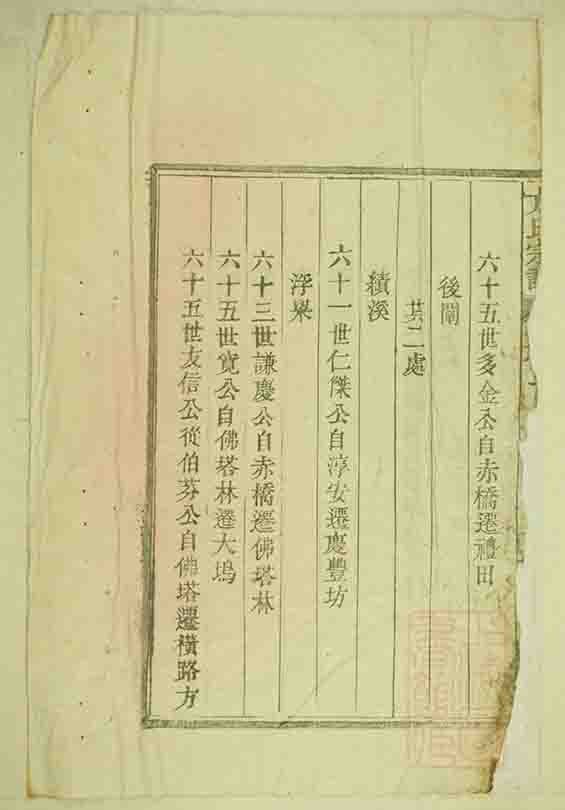 氏宗譜
六十五世多金公自赤橋遷禮田
後閘
其二處
績溪
六十一世仁傑公自淳安遷慶豐坊
浮梁
六十三世謙慶公自赤橋遷佛塔林
六十五世寬公自佛塔林遷大塢
六十五世友信公從伯芬公自佛塔遷橫路方